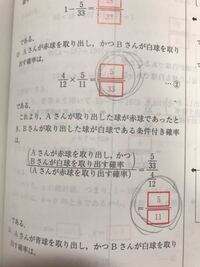 1 − 5/33 =
である。
Aさんが赤球を取り出し，かつBさんが白球を取り
出す確率は，
4/12 × 5/11 = 5/33 …②
である。
これより，Aさんが取り出した球が赤球であったと
き，Bさんが取り出した球が白球である条件付き確率
は，
(Aさんが赤球を取り出し，かつ
Bさんが白球を取り出す確率)/(Aさんが赤球を取り出す確率) = (5/33)/(4/12)
= 5/11
である。
Aさんが青球を取り出し，かつBさんが白球を取り
出す確率は，